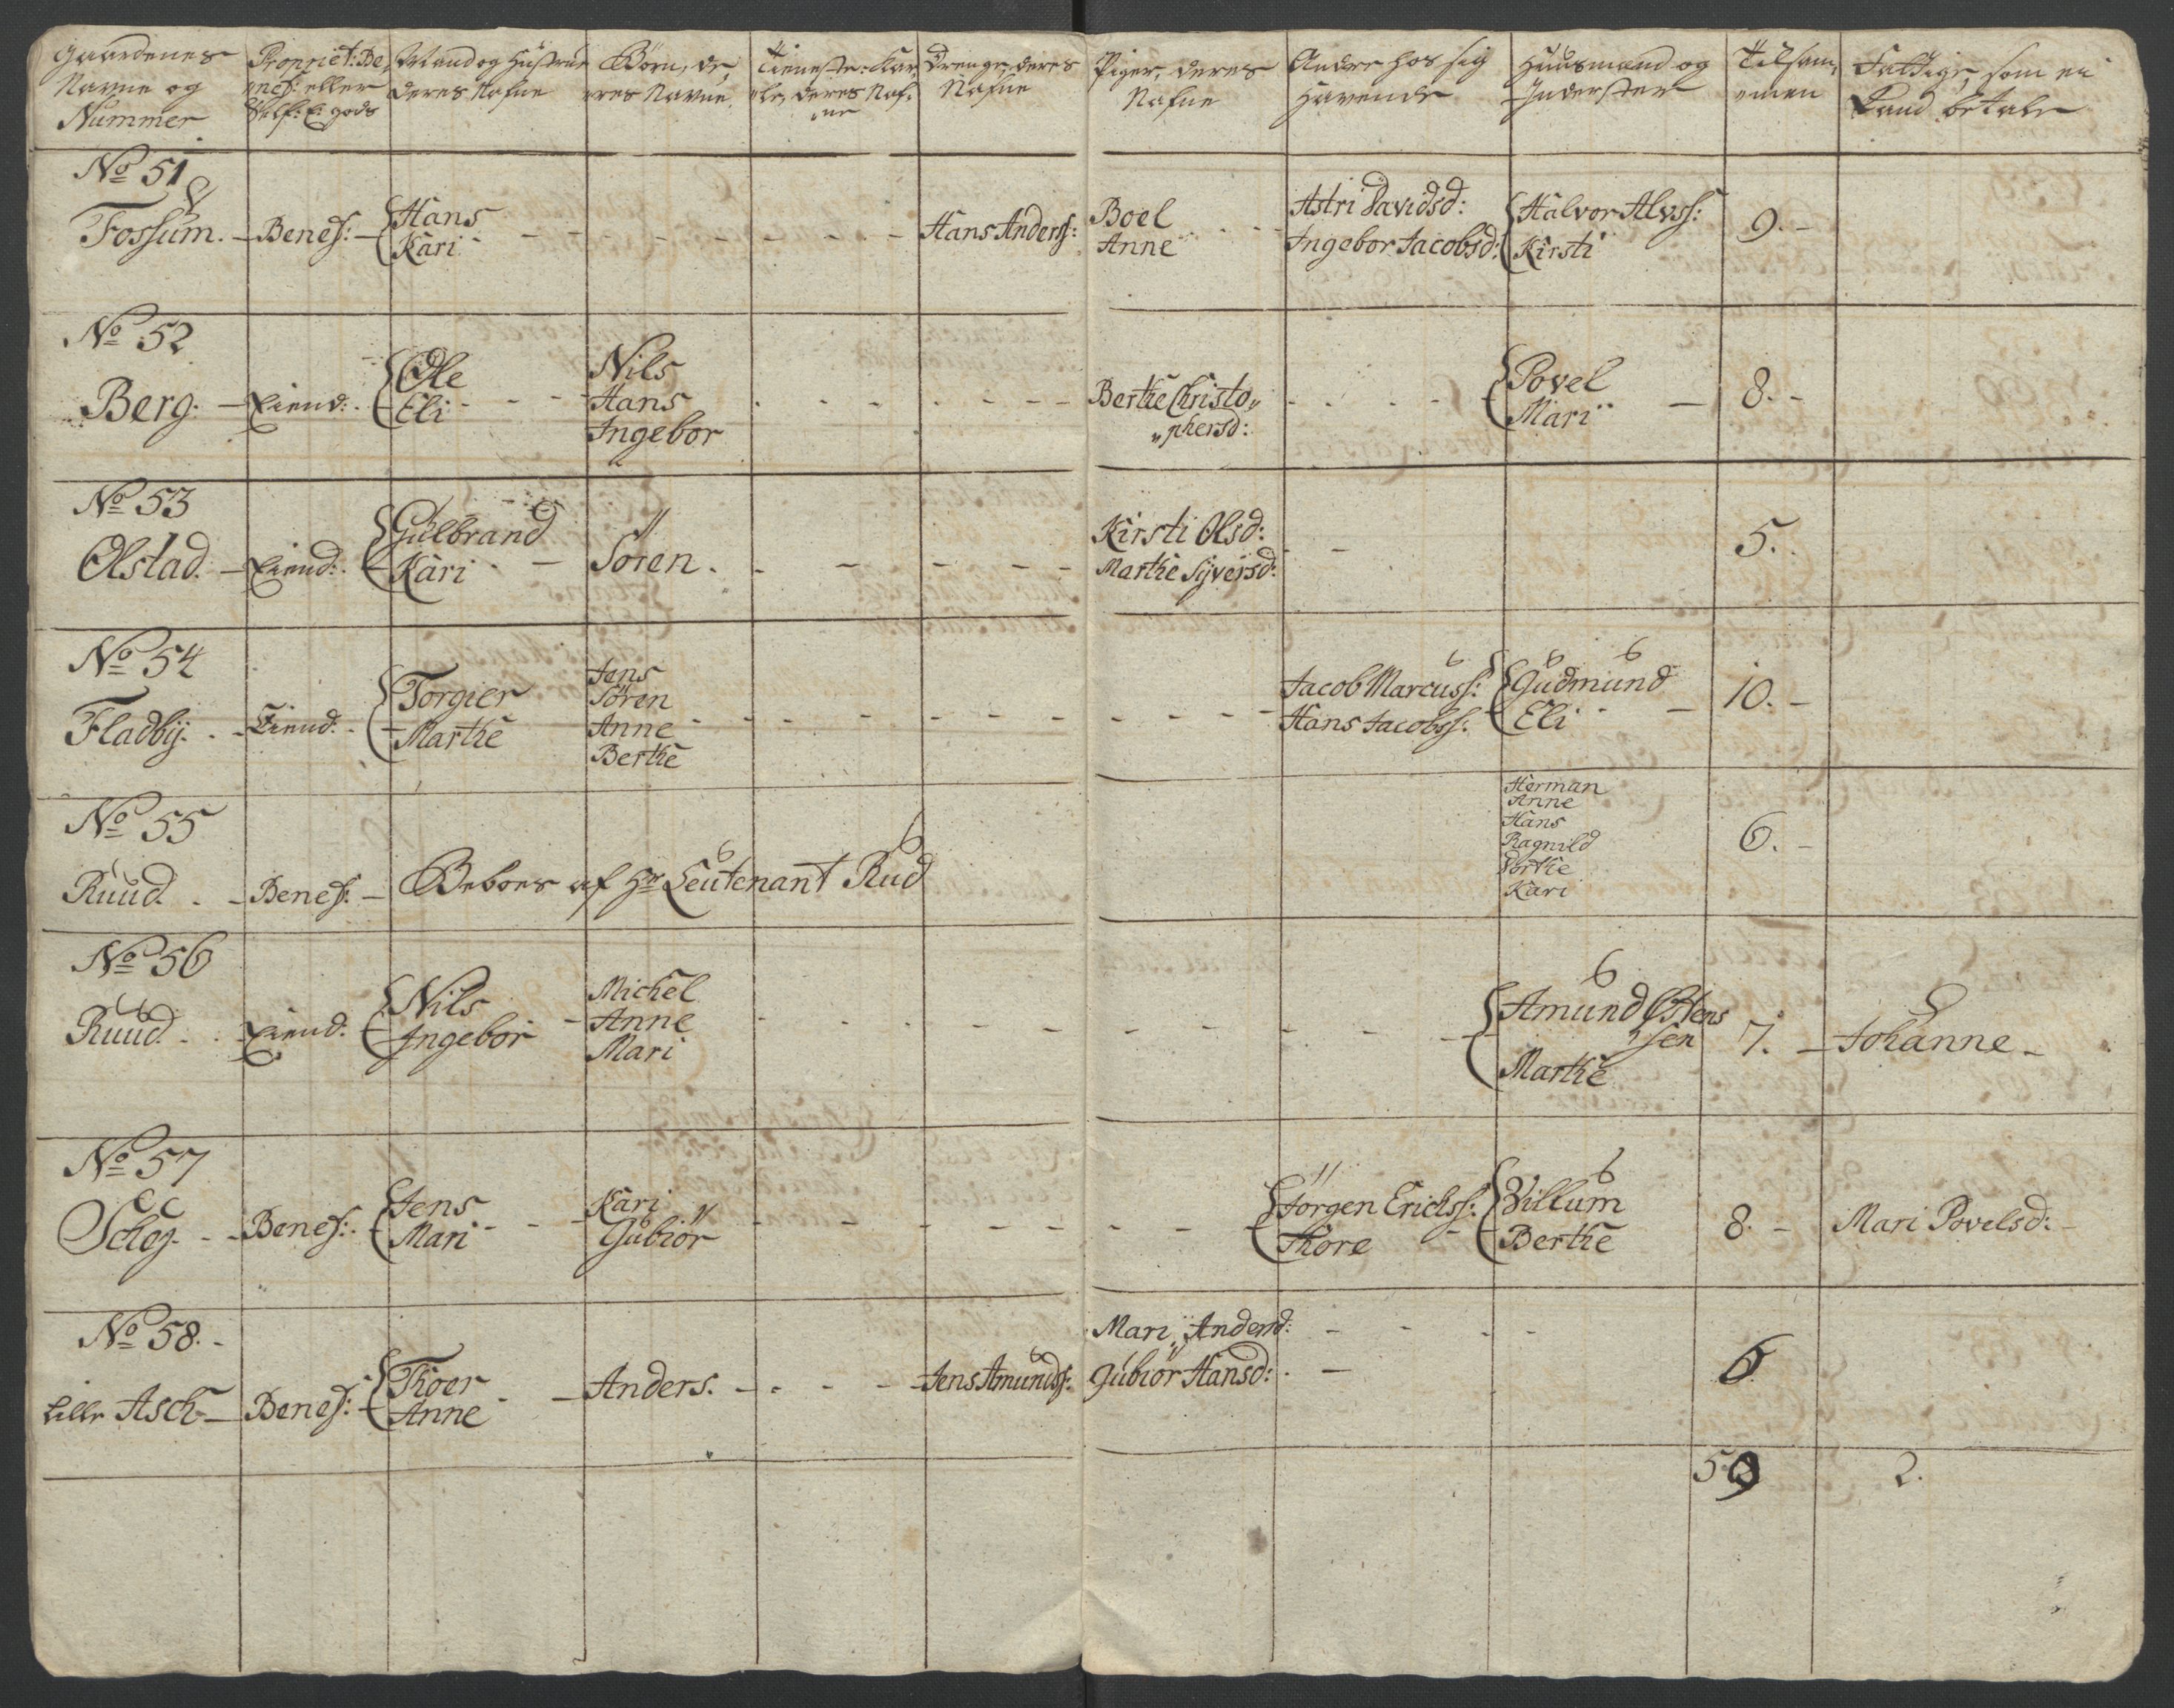 Gaardenes Navne og Nummer
Propriet: Benef: eller Self: E: gods
Mand og Hustrue deres Nafne
Børn, deres Navne
Tieneste-Karle, deres Nafne
Drenge, deres Nafne
Piger, deres Nafne
Andre hos sig havende
Huusmænd og Inderster
Tilsammen
Fattige som ei kand betale
No 51
Fossum. - Benef: - Hans
Kari
Hans Anderss:
Boel
Anne
Astri Davidsd:
Ingebor Jacobsd:
Halvor Alvss:
Kirsti
9. -
No 52
Berg. - Eiend: - Ole
Eli
Nils
Hans
Ingebor
Berthe Christo„
„phersd:
Povel
Mari
8. -
No 53
Olstad. - Eiend: - Gulbrand
Kari
Sören.
Kirsti Olsd:
Marthe Syversd:
5.
No 54
Fladbÿ. - Eiend: - Torgier
Marthe
Jens
Sören
Anne
Berthe
Jacob Marcuss:
Hans Jacobss:
Gudmund
Eli
10. -
No 55
Ruud. - Benef: - Beboes af Hr Leutenant Rud
Herman
Anne
Hans
Ragnild
Dorthe
Kari
6. -
No 56
Ruud. - Eiend: Nils
Ingebor
Michel
Anne
Mari
Amund Østens
sen
Marthe
7. - Johanne -
No 57
Schog. - Benef: - Jens
Mari
Kari
Gubiör
Jörgen Erichss:
Thore
Villum
Berthe
8. - Mari Povelsd: -
No 58. -
Lille Asch - Benef: - Thoer
Anne
Anders. - Jens Amundss:
Mari Andersd:
Gubiör Hansd:
6
59
2.